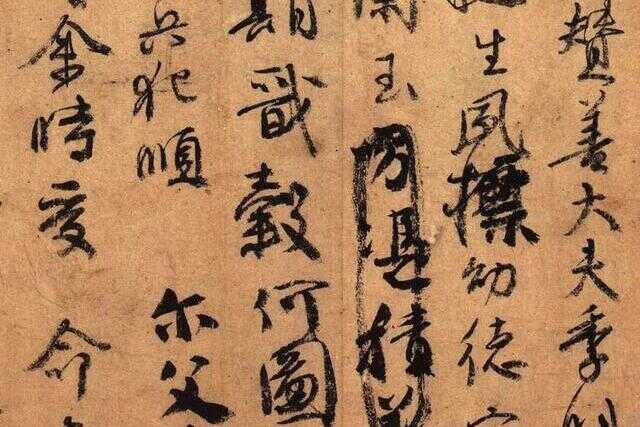 贊善大夫季明
生夙標幼德
蘭玉方憑積善
期戩穀何圖
兵犯順 尓父
余時受命